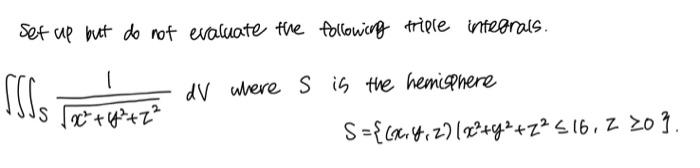 Set up but do not evaluate the following triple integrals.
∭_S 1/√(x²+y²+z²) dV where S is the hemisphere
S={(x,y,z)|x²+y²+z²≤16, z≥0}.